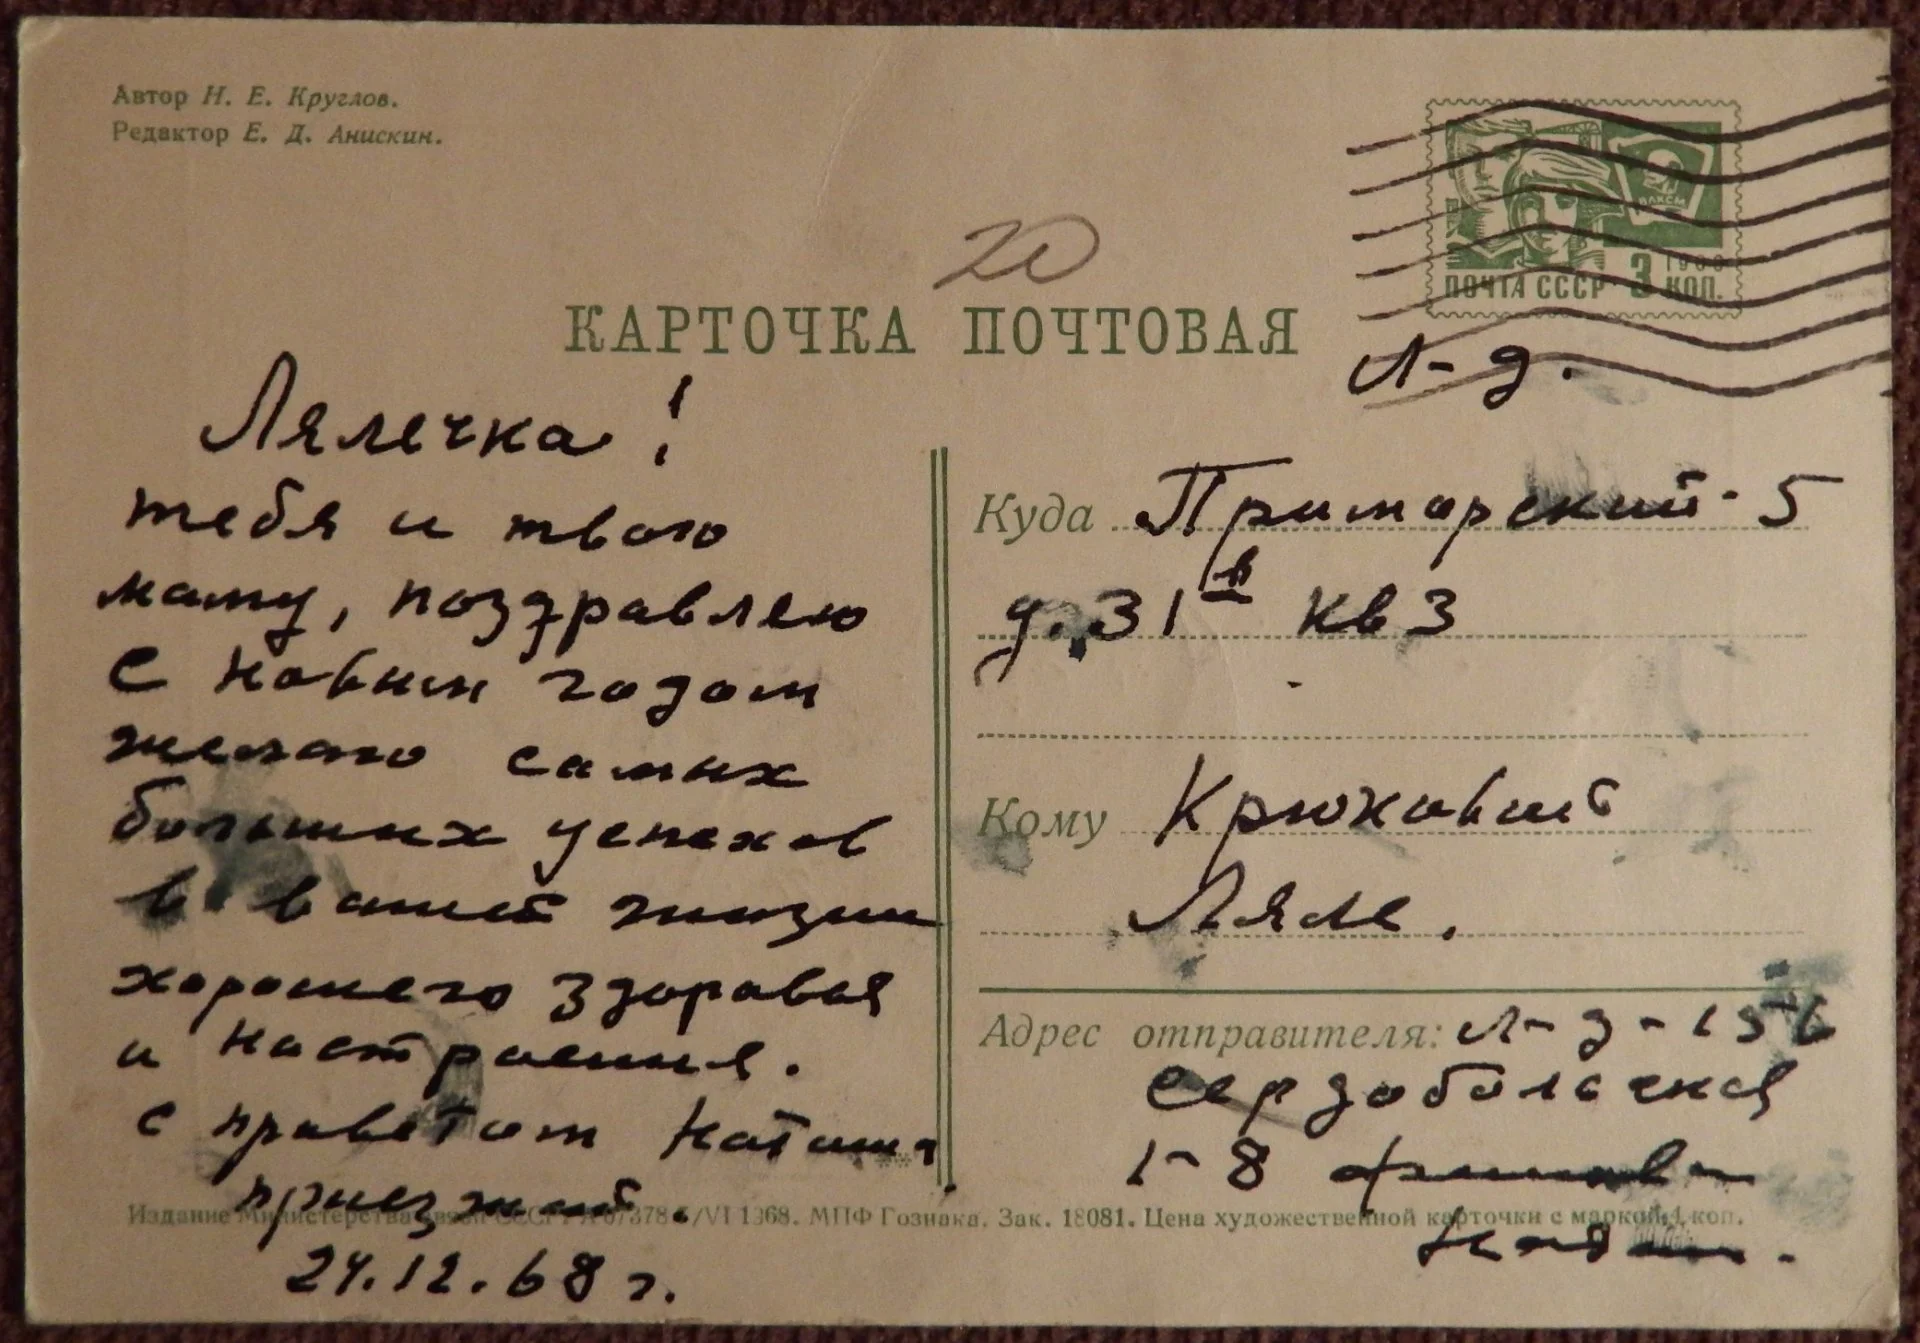 Автор Н. Е. Круглов.
Редактор Е. Д. Анискин.
ВЛКСМ
ПОЧТА СССР 3 КОП.
20
КАРТОЧКА ПОЧТОВАЯ
Лялечка!
тебя и твою
маму, поздравляю
с новым годом
желаю самых
больших успехов
в вашей жизни
хорошего здоровья
и настроения.
с приветом Наташа
приезжай.
24.12.68 г.
Л-д.
Куда Приморский-5
д. 31 в кв 3
Кому Крюковой
Ляле.
Адрес отправителя: Л-д-156
Сердобольская
1-8
Издание Министерства связи СССР. 1968. МПФ Гознака. Зак. 18081. Цена художественной карточки с маркой 4 коп.